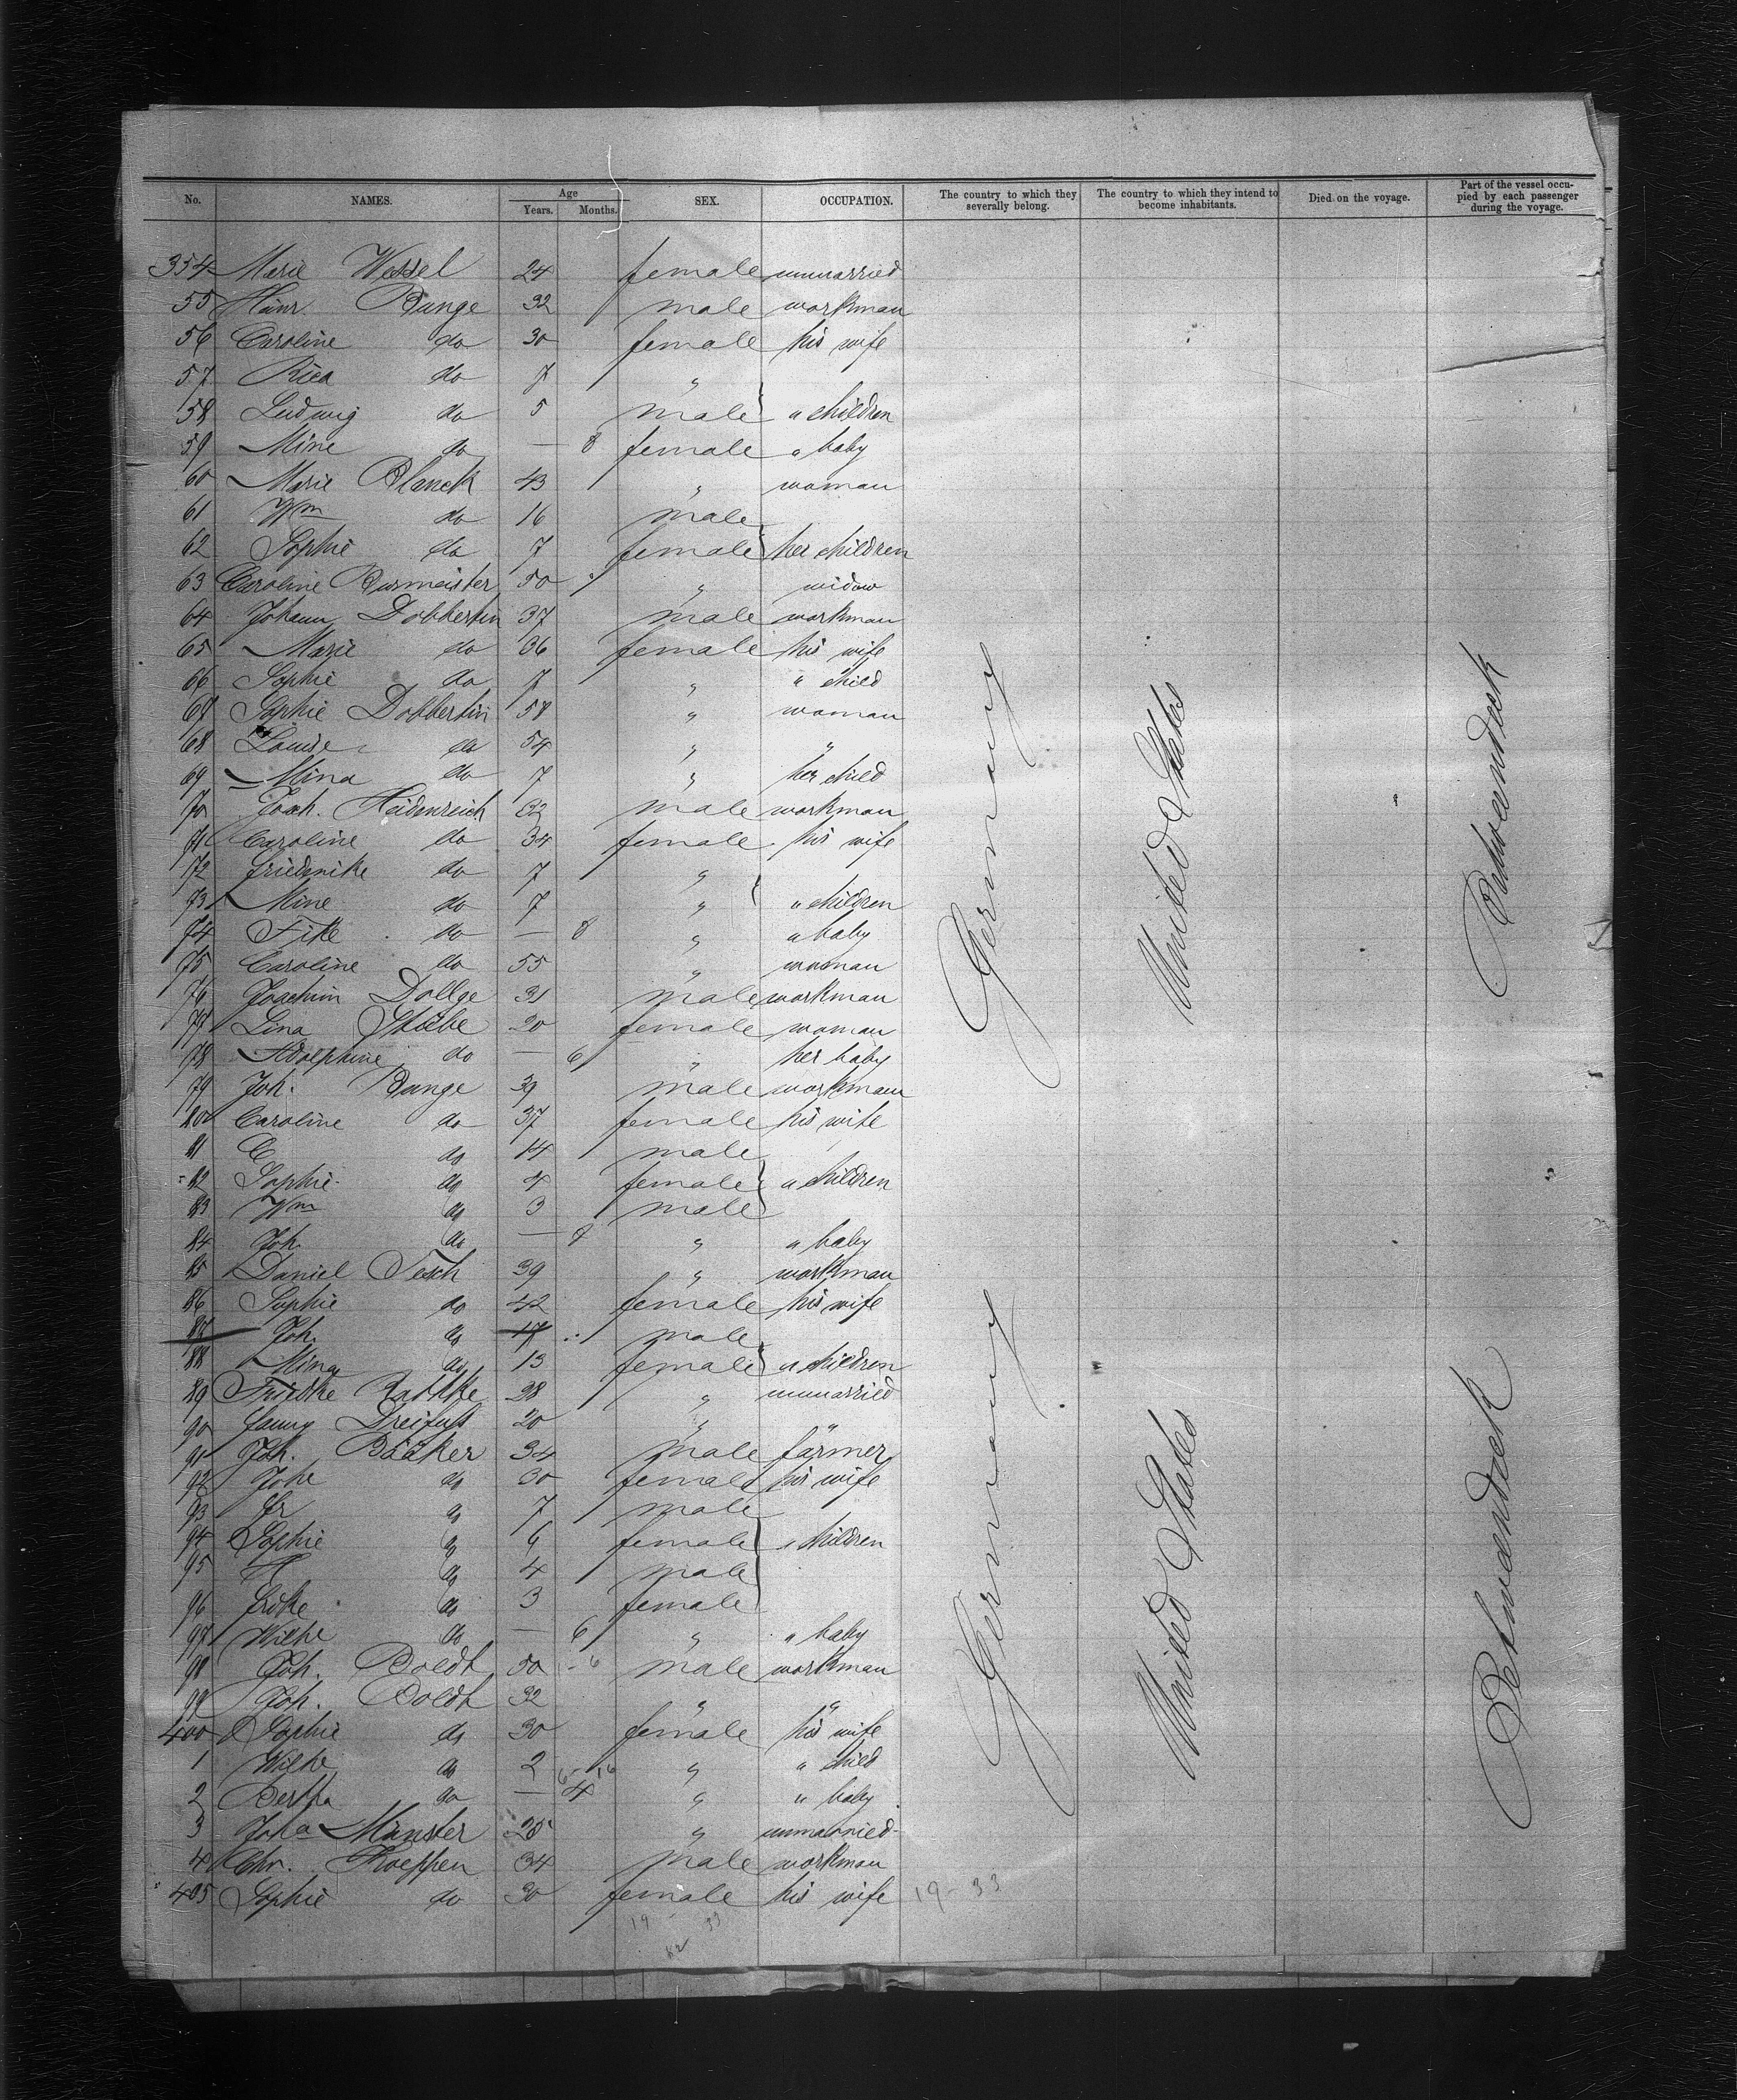 No. NAMES. Age Years. Months. SEX. OCCUPATION. The country to which they severally belong. The country to which they intend to become inhabitants. Died on the voyage. Part of the vessel occupied by each passenger during the voyage.
354 Marie Wessel 24 female unmarried
55 Heinr. Bunge 32 male workman
56 Caroline do 30 female his wife
57 Rica do 7 "
58 Ludwig do 5 male " children
59 Mine do — 8 female " baby
60 Marie Blanck 43 " woman
61 Wm do 16 male
62 Sophie do 7 female her children
63 Caroline Burmeister 50 " widow
64 Johann Dobbertin 37 male workman
65 Marie do 36 female his wife
66 Sophie do 7 " " child
67 Sophie Dobbertin 58 " woman
68 Louise do 54 " "
69 Mina do 7 " her child
70 Joach. Heidenreich 32 male workman
71 Caroline do 34 female his wife
72 Friedrike do 7 "
73 Mine do 7 " " children
74 Fike do — 8 " " baby
75 Caroline do 55 " woman
76 Joachim Dollge 31 male workman
77 Lina Stübe 20 female woman
78 Adolphine do — 6 " her baby
79 Joh. Bunge 39 male workman
80 Caroline do 37 female his wife
81 C do 14 male
82 Sophie do 4 female " children
83 Wm do 3 male
84 Joh. do — 9 " " baby
85 Daniel Tesch 39 " workman
86 Sophie do 42 female his wife
87 Joh. do 17 male
88 Mina do 13 female " children
89 Friedke Rathke 28 " unmarried
90 Fanny Dreifuss 20 " "
91 Joh. Bääker 34 male farmer
92 Johe do 30 female his wife
93 Fr do 7 male
94 Sophie do 6 female " children
95 H do 4 male
96 Frdke do 3 female
97 Wilhe do — 6 " " baby
98 Joh. Boldt 50 male workman
99 Joh. Boldt 32 " "
400 Sophie do 30 female his wife
1 Wilhe do 2 " " child
2 Bertha do — 4 " " baby
3 Joha Münster 25 " unmarried
4 Chr. Koeppen 34 male workman
405 Sophie do 30 female his wife 19-33
19 - 33
Germany United States Betweendeck
Germany United States Betweendeck